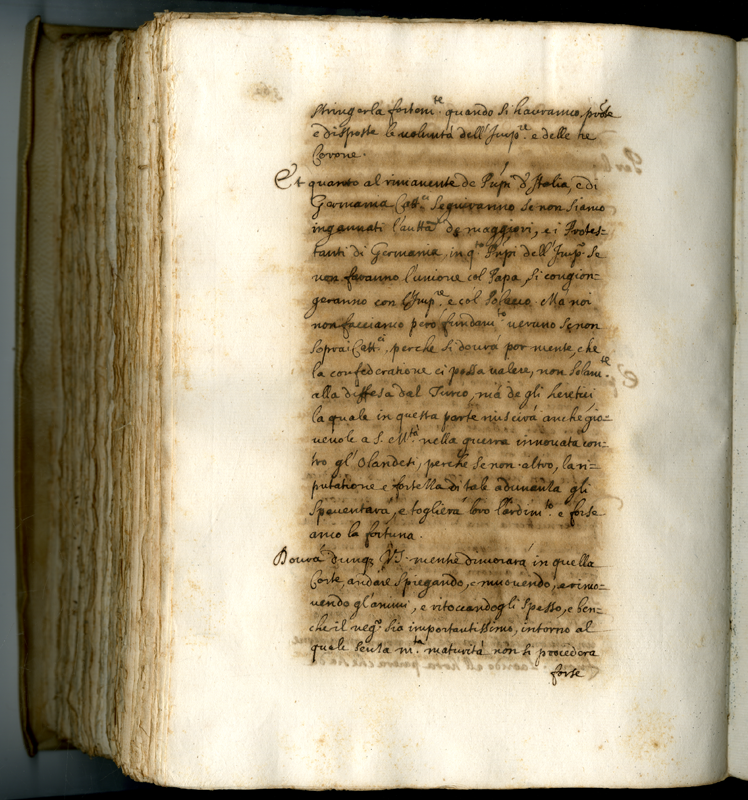 stringerla fortem.te quando si havranno, pñte
e disposte le voluntà dell'Imp.re e delle tre
Corone.
Et quanto al rimanente de Prpi d'Italia, e di
Germania Catt.ci seguiranno se non siamo
ingannati l'autt.tà de maggiori, e i Protes=
tanti di Germania, in q.to Prpi dell'Imp.o se
non faranno l'unione col Papa, si congion=
geranno con l'Imp.re e col Polacco. Ma noi
non facciamo però fundam.to veruno se non
sopra i Catt.ci, perche si dourà por mente, che
la confederatione ci possa valere, non solam.te
alla diffesa dal Turco, mà de gli heretici
la quale in questa parte riuscirà anche gio=
uevole a S. M.tà nella guerra innouata con=
tro gl'Olandesi, perche se non altro, la ri=
putatione e fortezza di tale adunanza gli
spaventarà, e toglierà loro l'ardim.to e forse
anco la fortuna.
Dourà dunq; V.S. mentre dimorarà in quella
Corte, andare spiegando, e muovendo, e rimo=
uendo gl'animi, e ritoccandogli spesso, e ben=
che il neg.o sia importantissimo, intorno al
quale senza m.ta maturità non si procederà
forse